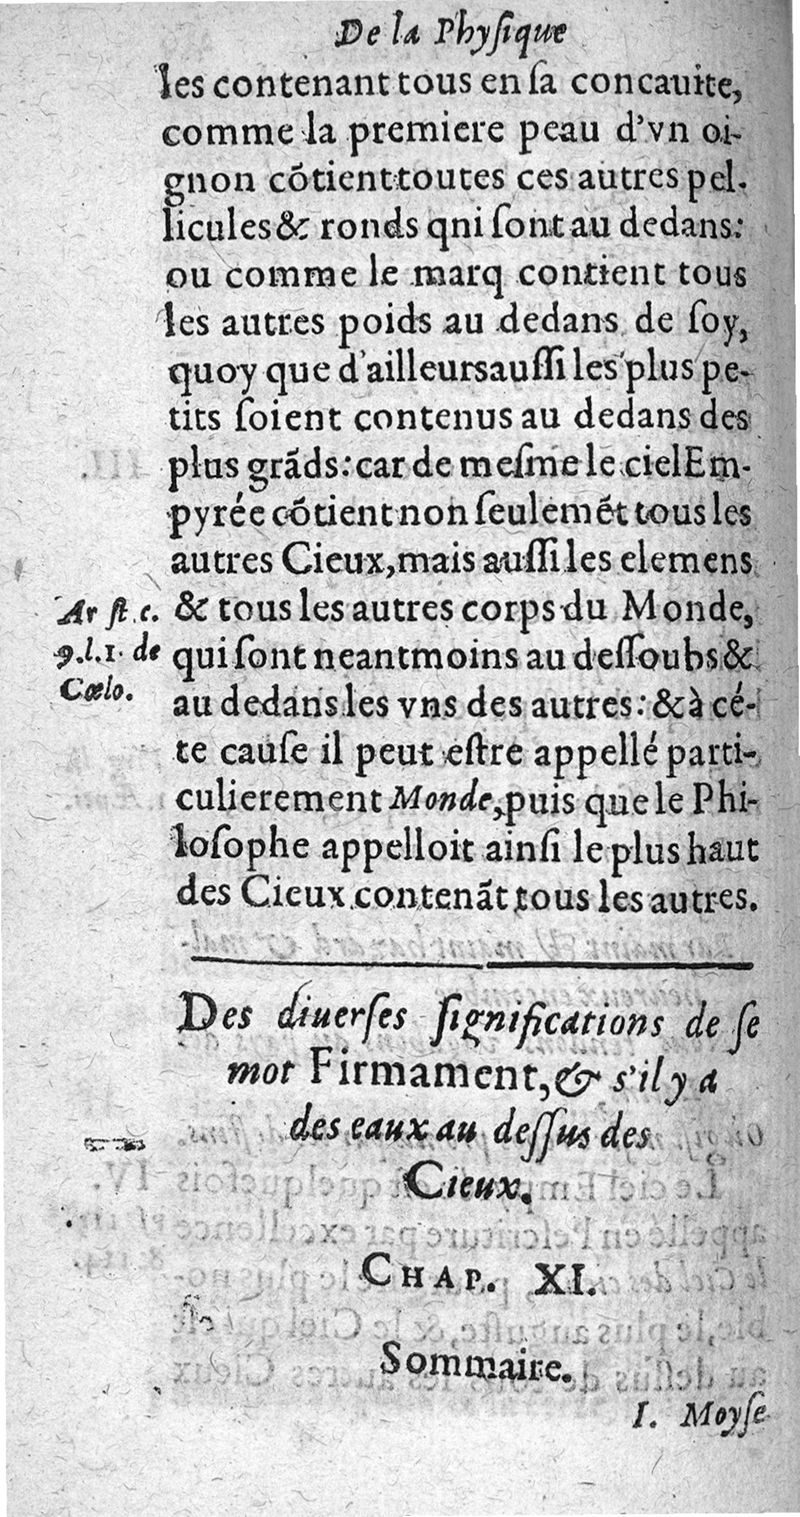 De la Phyſique
les contenant tous en ſa concauite,
comme la premiere peau d'vn oi-
gnon cõtient toutes ces autres pel-
licules & ronds qni ſont au dedans:
ou comme le marq contient tous
les autres poids au dedans de ſoy,
quoy que d'ailleurs auſſi les plus pe-
tits ſoient contenus au dedans des
plus grãds: car de meſme le ciel Em-
pyrée cõtient non ſeulemẽt tous les
autres Cieux, mais auſſi les elemens
& tous les autres corps du Monde,
qui ſont neantmoins au deſſoubs &
au dedans les vns des autres: & à cé-
te cauſe il peut eſtre appellé parti-
culierement Monde, puis que le Phi-
loſophe appelloit ainſi le plus haut
des Cieux contenãt tous les autres.
Ar ſt. c.
9. l. 1. de
Cœlo.
Des diuerſes ſignifications de ſe
mot Firmament, & s'il y a
des eaux au deſſus des
Cieux.
CHAP. XI.
Sommaire.
I. Moyſe